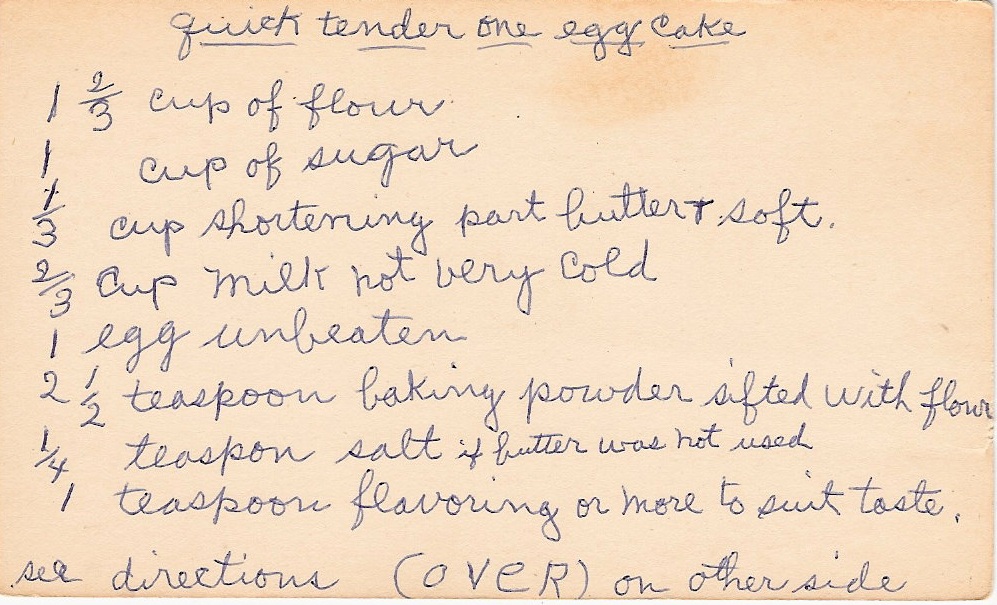 quick tender one egg cake
1 2/3 cup of flour
1 cup of sugar
1/3 cup shortening part butter + soft.
2/3 cup milk not very cold
1 egg unbeaten
2 1/2 teaspoon baking powder sifted with flour
1/4 teaspon salt if butter was not used
1 teaspoon flavoring or more to suit taste.
see directions (OVER) on other side